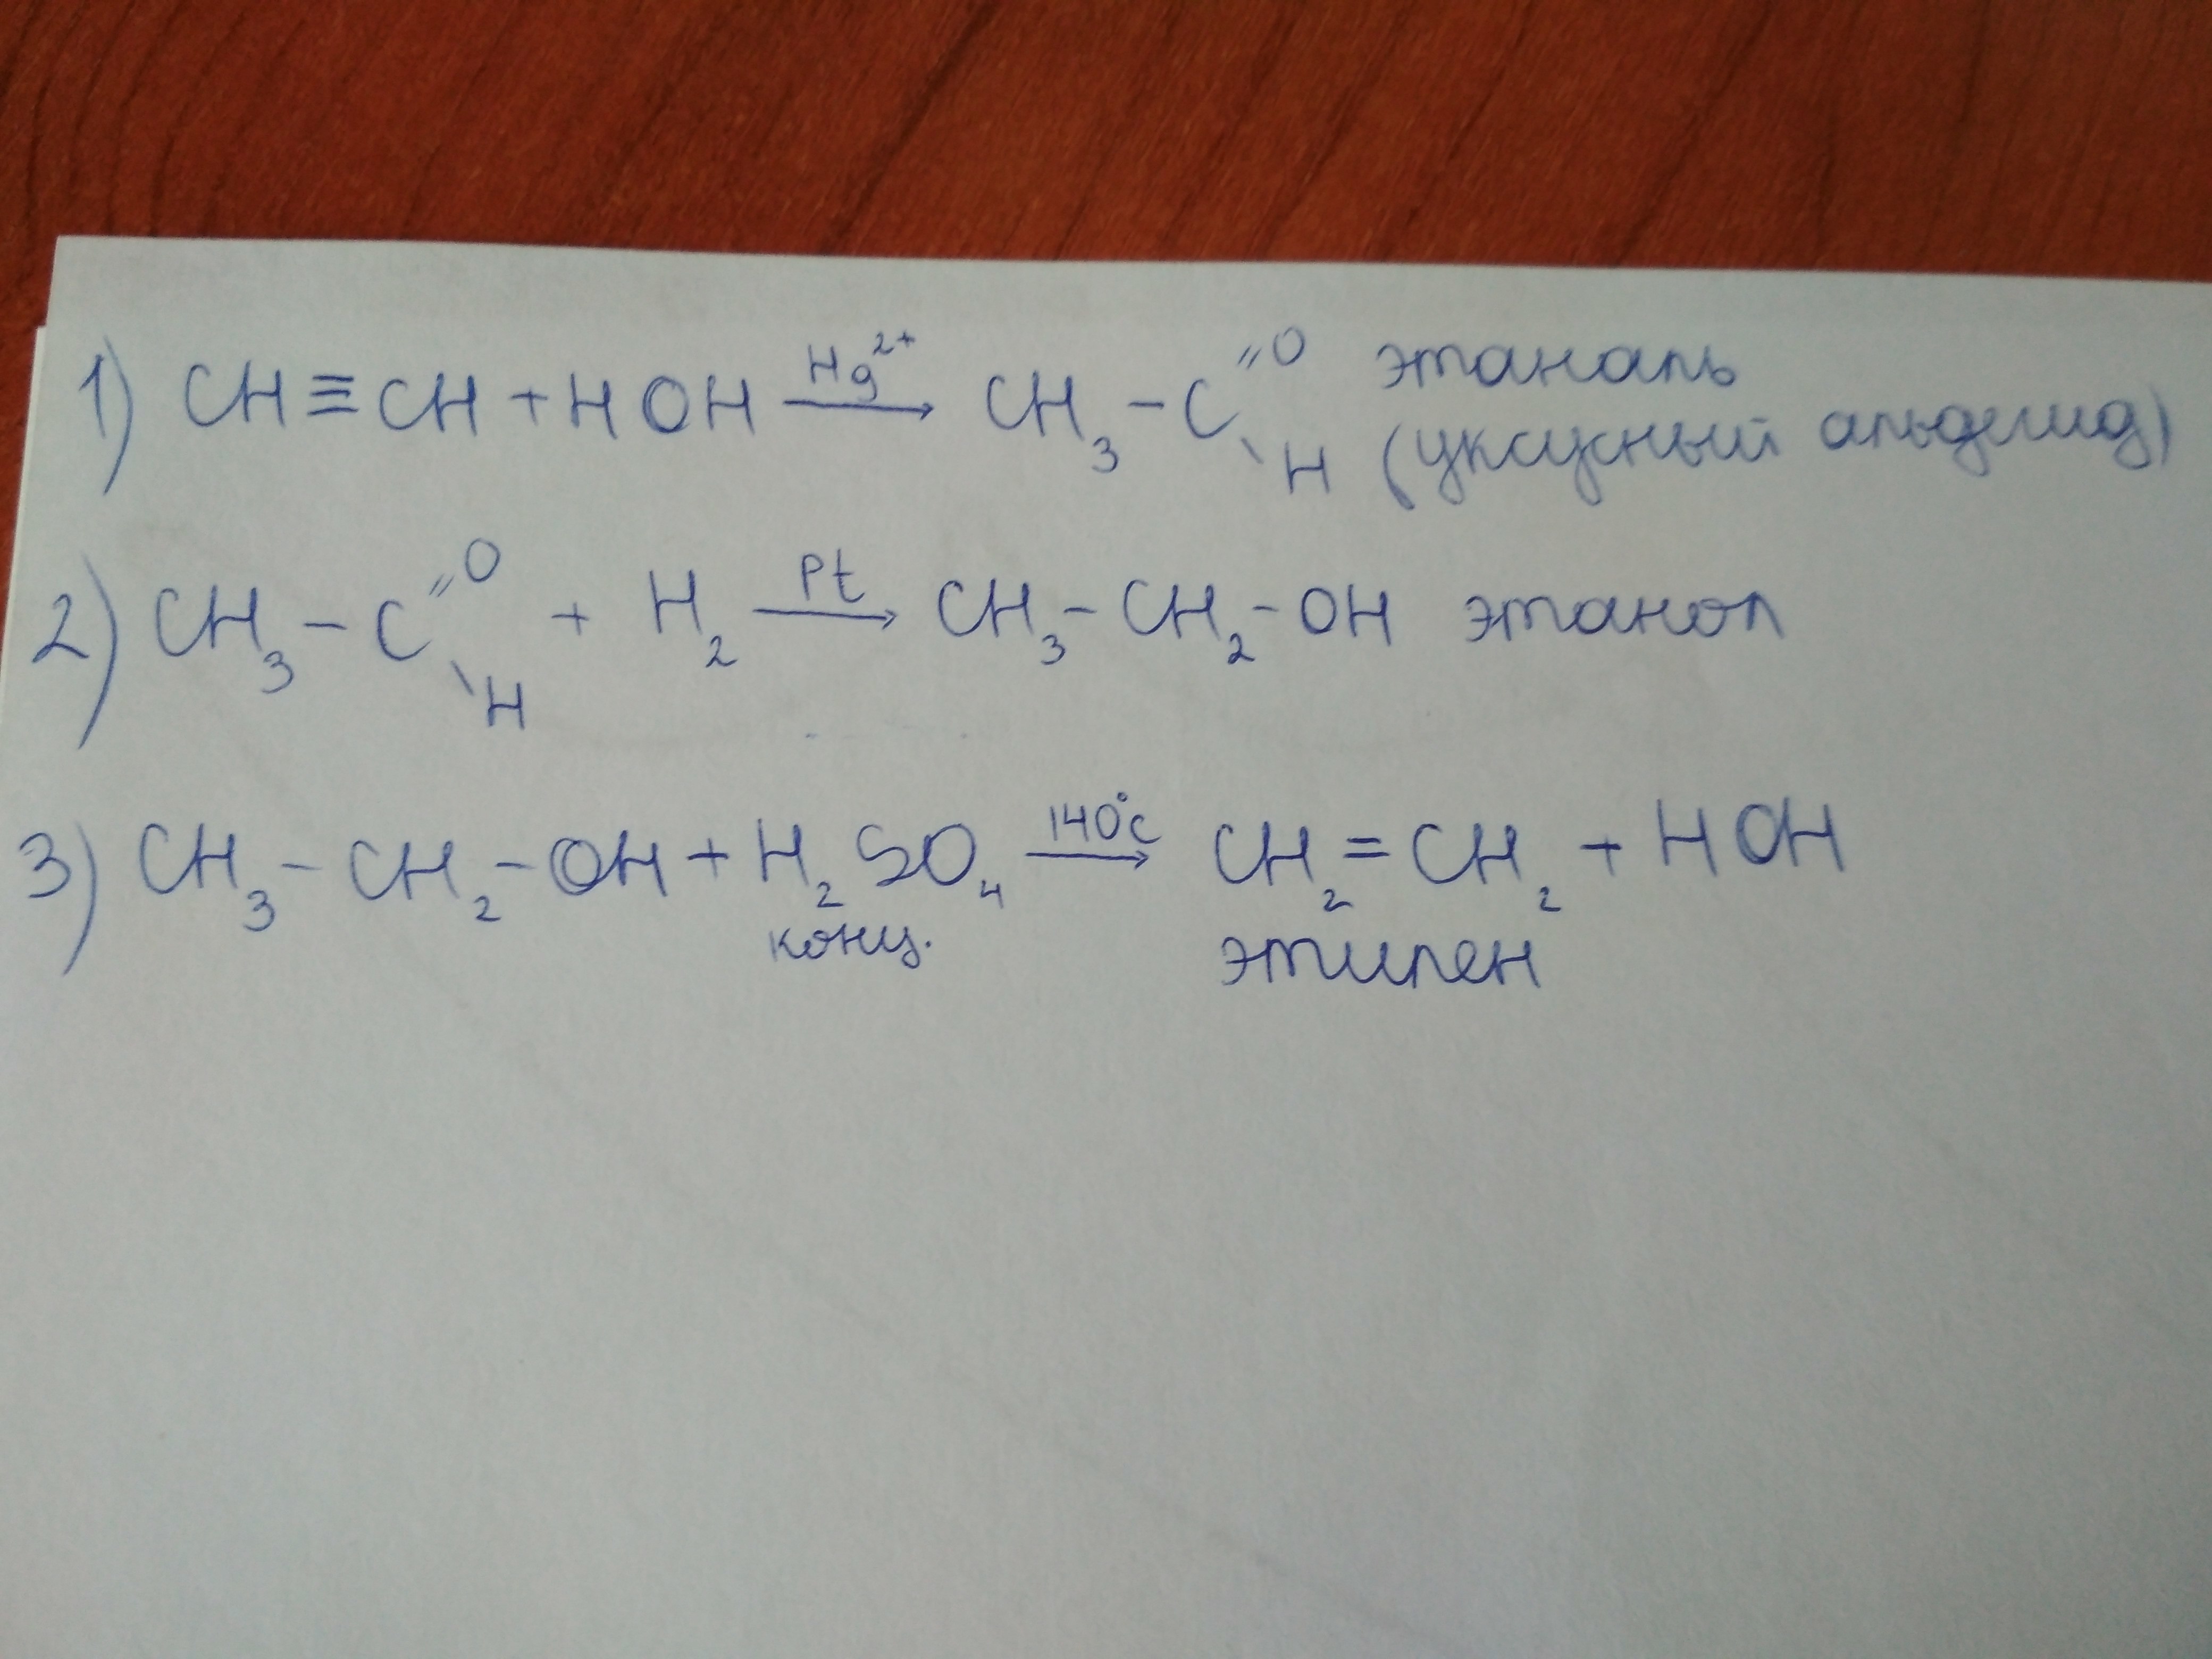 1) CH≡CH + HOH —Hg²⁺→ CH₃–C(=O)(–H) этаналь
(уксусный альдегид)
2) CH₃–C(=O)(–H) + H₂ —Pt→ CH₃–CH₂–OH этанол
3) CH₃–CH₂–OH + H₂SO₄ —140°C→ CH₂=CH₂ + HOH
конц. этилен